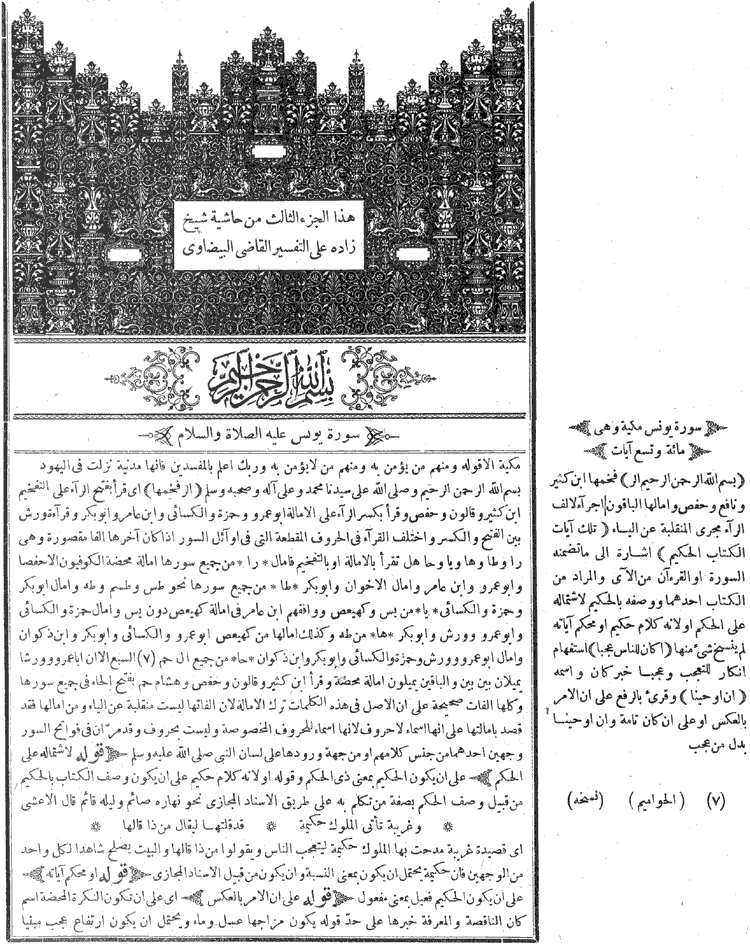 هذا الجزء الثالث من حاشية شيخ
زاده على التفسير القاضى البيضاوى
بسم الله الرحمن الرحيم
سورة يونس عليه الصلاة والسلام
مكية الاقوله ومنهم من يؤمن به ومنهم من لايؤمن به وربك اعلم بالمفسدين فانها مدنية نزلت فى اليهود
بسم الله الرحمن الرحيم وصلى الله على سيدنا محمد وعلى آله وصحبه وسلم (الر فخمها) اى قرأ بفتح الرآء على التفخيم
ابن كثير وقالون وحفص وقرأ بكسر الرآء على الامالة ابوعمرو وحمزة والكسائى وابن عامر وابوبكر وقرأه ورش
بين الفتح والكسر واختلف القرآء فى الحروف المقطعة التى فى اوآئل السور اذا كان آخرها الفا مقصورة وهى
را وطا وها ويا وحا هل تقرأ بالامالة او بالتفخيم فامال * را * من جميع سورها امالة محضة الكوفيون الاحفصا
وابوعمرو وابن عامر وامال الاخوان وابوبكر *طا* من جميع سورها نحو طس وطسم وطه وامال ابوبكر
وحمزة والكسائى *يا* من يس وكهيعص ووافقهم ابن عامر فى امالة كهيعص دون يس وامال حمزة والكسائى
وابوعمرو وورش وابوبكر *ها* من طه وكذلك امالها من كهيعص ابوعمرو والكسائى وابوبكر وابن ذكوان
وامال ابوعمرو وورش وحمزة والكسائى وابوبكر وابن ذكوان *حا* من جميع ال حم (٧) السبع الاان اباعمرو وورشا
يميلان بين بين والباقين يميلون امالة محضة وقرأ ابن كثير وقالون وحفص وهشام حم بفتح الحاء فى جميع سورها
وكلها لغات صحيحة على ان الاصل فى هذه الكلمات ترك الامالة لان الفاتها ليست منقلبة عن الياء ومن امالها فقد
قصد بامالتها على انها اسماء لا حروف لانها اسماء للحروف المخصوصة وليست بحروف وقدمر ان فى فواتح السور
وجهين احدهما من جنس كلامهم او من جهة ورودها على لسان النبى صلى الله عليه وسلم ﴿قوله لاشتماله على
الحكم﴾ على ان يكون الحكيم بمعنى ذى الحكم وقوله اولانه كلام حكيم على ان يكون وصف الكتاب بالحكيم
من قبيل وصف الحكم بصفة من تكلم به على طريق الاسناد المجازى نحو نهاره صائم وليله قائم قال الاعشى
* وغريبة تأتى الملوك حكيمة * قدقلتها ليقال من ذا قالها *
اى قصيدة غريبة مدحت بها الملوك حكيمة ليتعجب الناس ويقولوا من ذا قالها والبيت يصلح شاهدا لكل واحد
من الوجهين فان حكيمة يحتمل ان يكون بمعنى النسبة وان يكون من قبيل الاسناد المجازى ﴿قوله او محكم آياته﴾
على ان يكون الحكيم فعيل بمعنى مفعول ﴿قوله على ان الامر بالعكس﴾ اى على ان تكون النكرة المحضة اسم
كان الناقصة والمعرفة خبرها على حد قوله يكون مزاجها عسل وماء ويحتمل ان يكون ارتفاع عجب مبنيا
سورة يونس مكية وهى
مائة وتسع آيات
(بسم الله الرحمن الرحيم الر) فخمها ابن كثير
ونافع وحفص وامالها الباقون اجرآء لالف
الرآء مجرى المنقلبة عن الياء (تلك آيات
الكتاب الحكيم) اشارة الى ماتضمنه
السورة او القرءآن من الآى والمراد من
الكتاب احدهما ووصفه بالحكيم لاشتماله
على الحكم اولانه كلام حكيم او محكم آياته
لم ينسخ شئ منها (اكان للناس عجبا) استفهام
انكار للتعجب وعجبا خبر كان واسمه
(ان اوحينا) وقرئ بالرفع على ان الامر
بالعكس او على ان كان تامة وان اوحينا
بدل من عجب
(٧) (الحواميم) (نسخه)